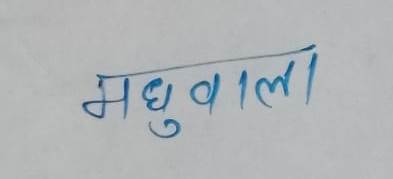 मधुवाला